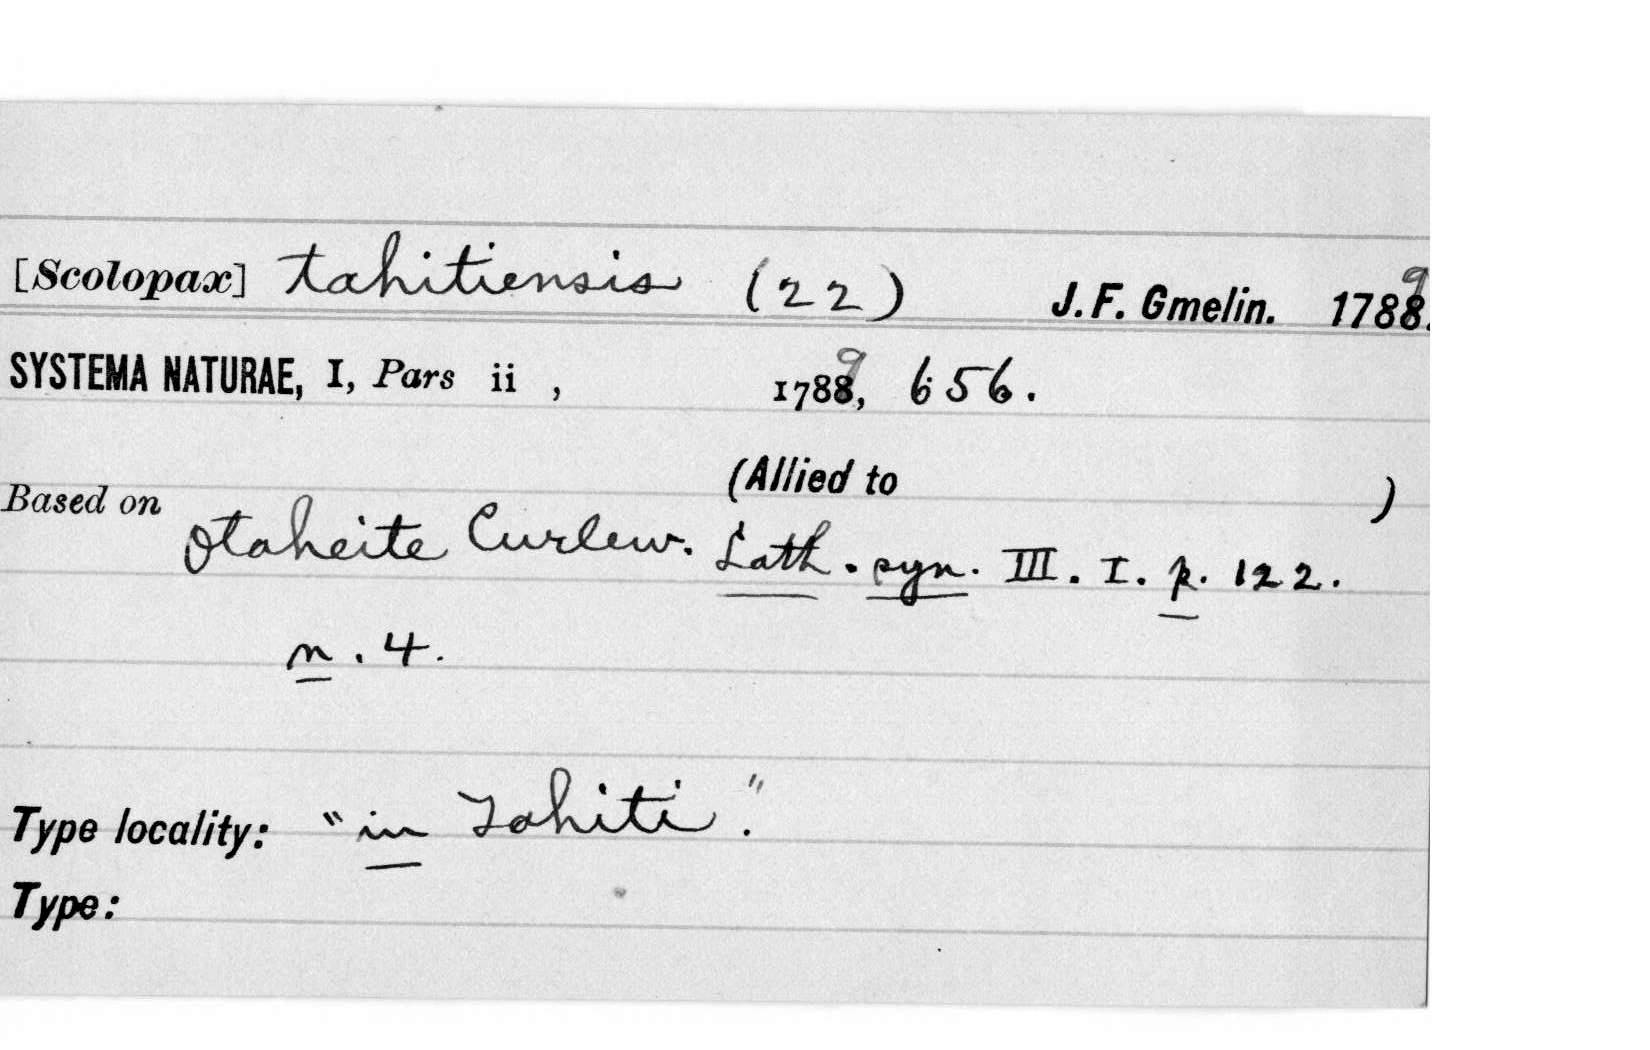 [Scolopax] tahitiensis (22) J. F. Gmelin. 1789.
SYSTEMA NATURAE, I, Pars ii , 1789, 656.
(Allied to )
Based on Otaheite Curlew. Lath. syn. III. I. p. 122.
n. 4.
Type locality: "in Tahiti."
Type: